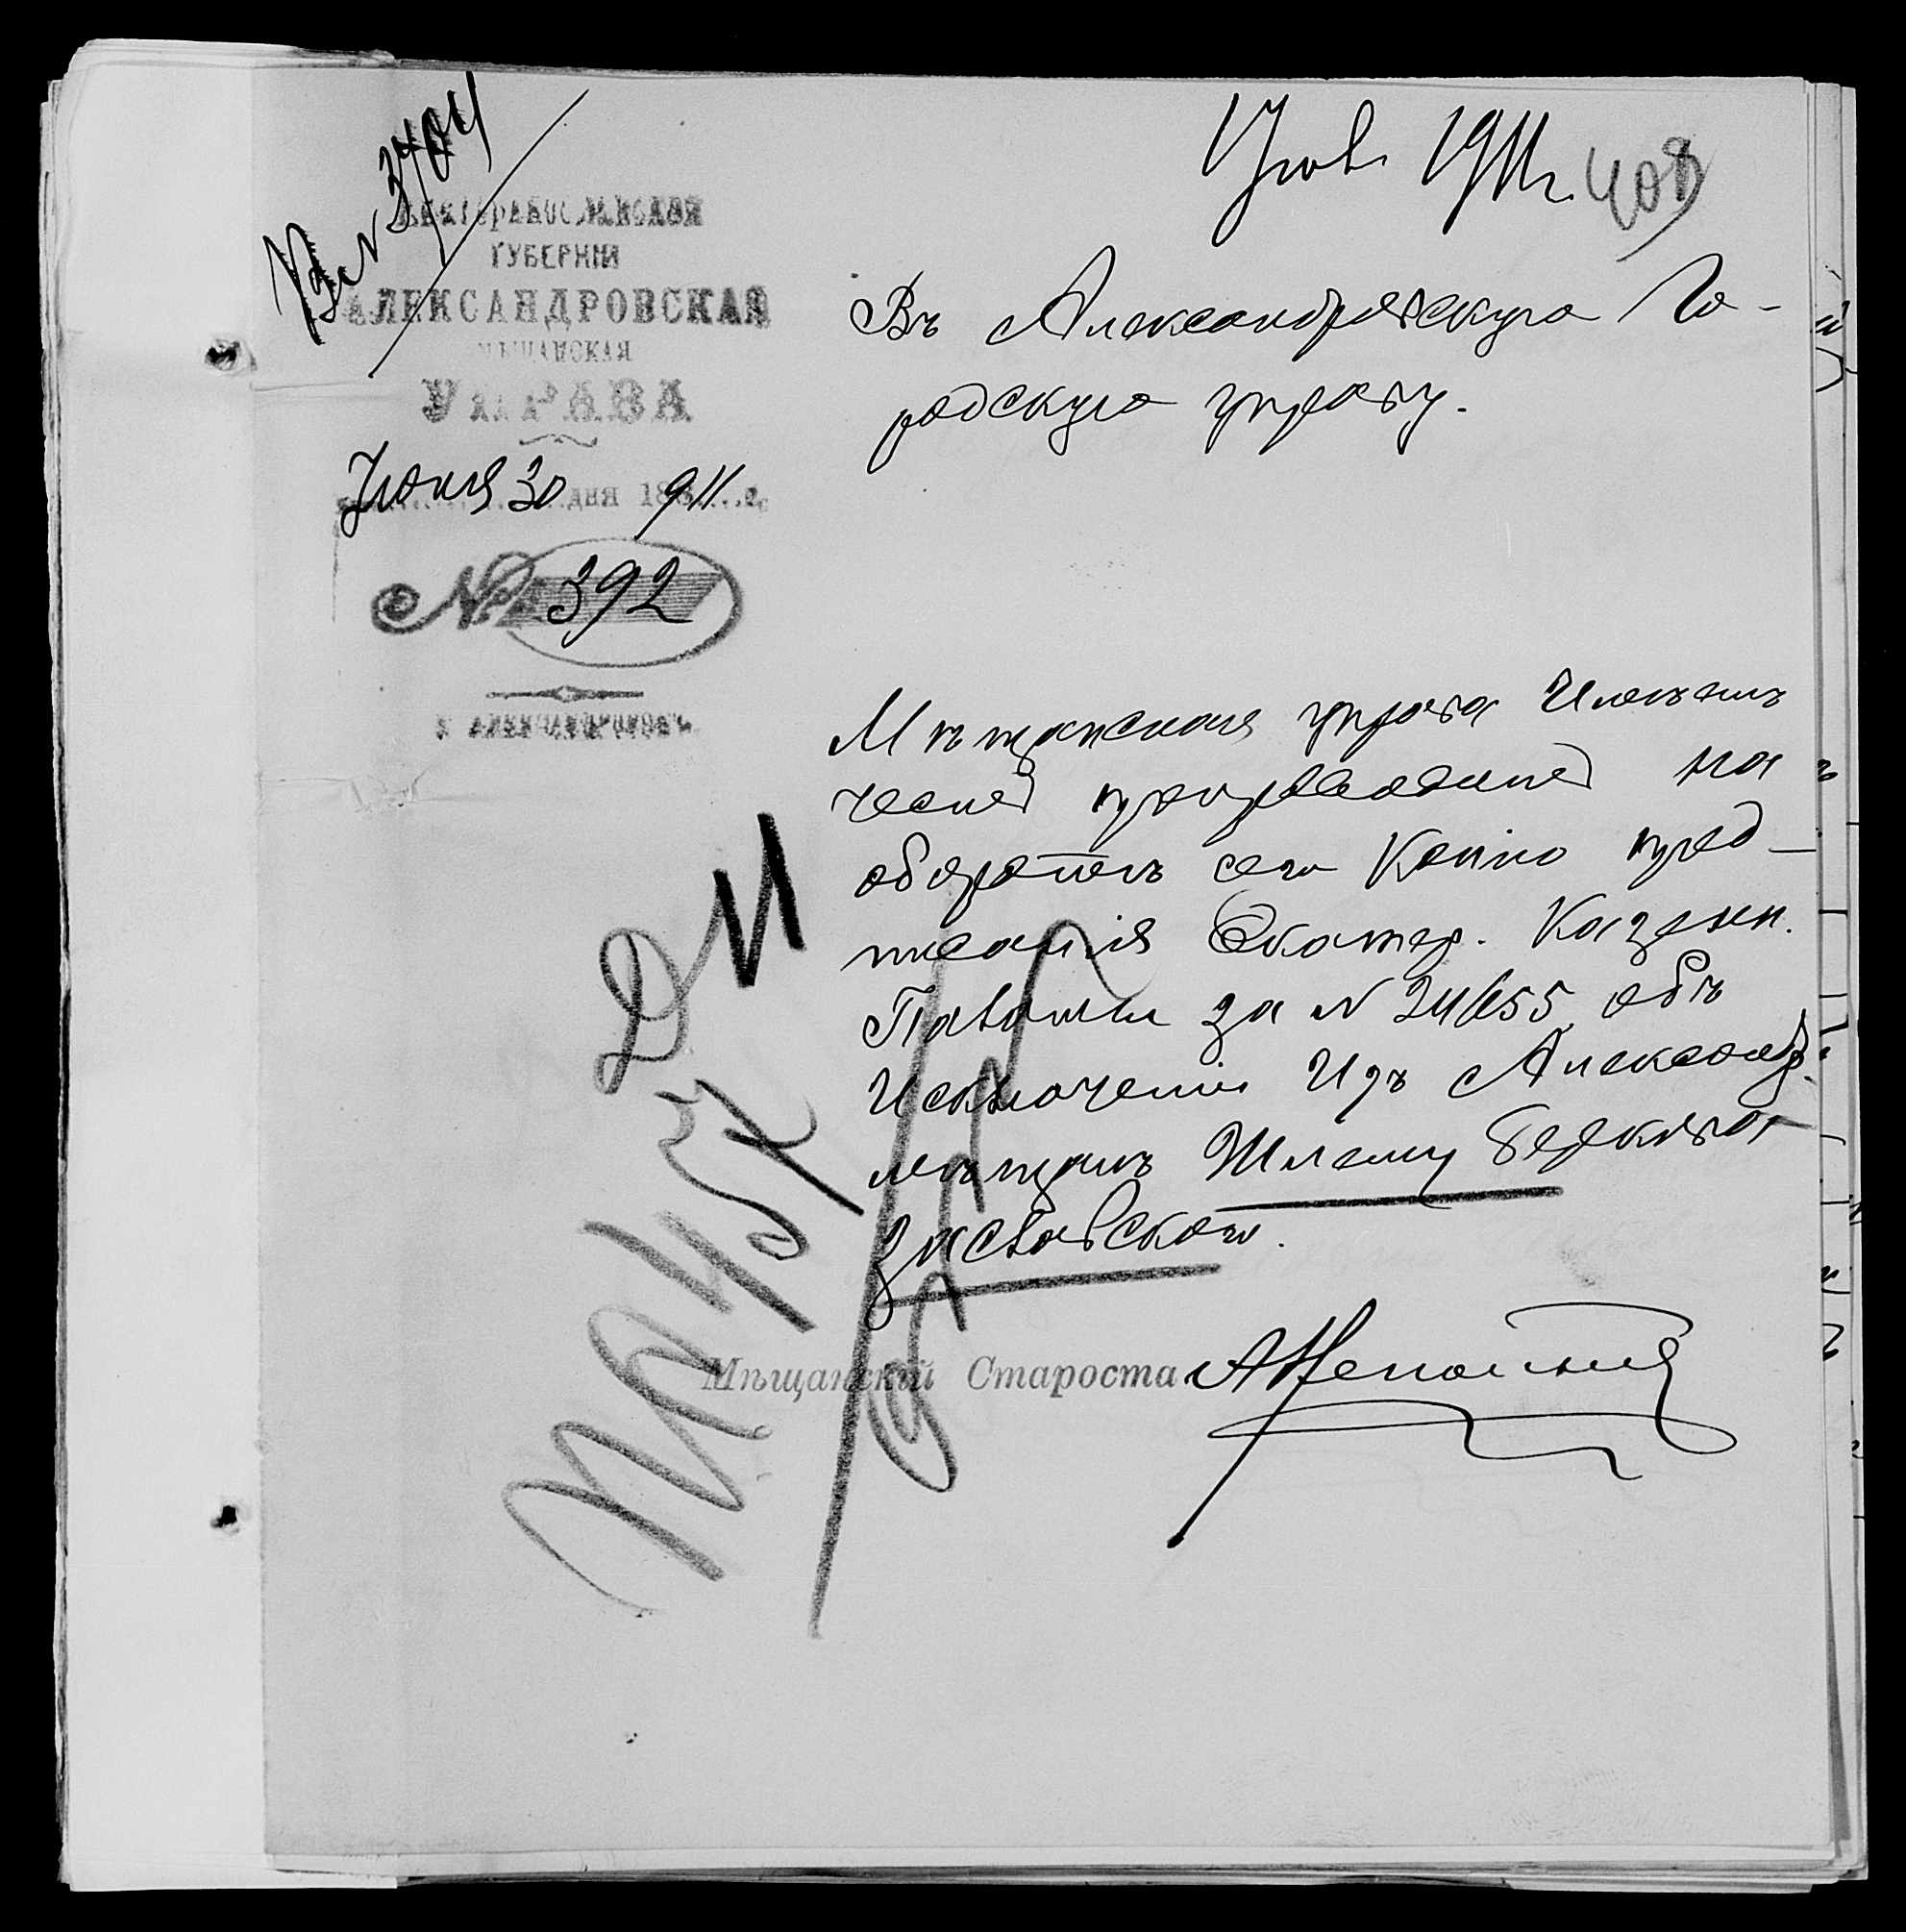 Вх N 3704
1 Іюл. 1911 г.
408
ЕКАТЕРИНОСЛАВСКАЯ
ГУБЕРНІЯ
АЛЕКСАНДРОВСКАЯ
МѢЩАНСКАЯ
УПРАВА
Іюня 30 дня 1911 г.
№ 392
Г. АЛЕКСАНДРОВСКЪ
Въ Александровскую Го-
родскую управу.
Мѣщанская управа Имѣетъ
честь препроводить на
оборотѣ сего Копію пред-
писанія Екатер. Казенн.
Палаты за N 24655 объ
Исключеніи Изъ Александр.
мѣщанъ Шлему Беркова
Заславскаго.
Мѣщанскій Староста